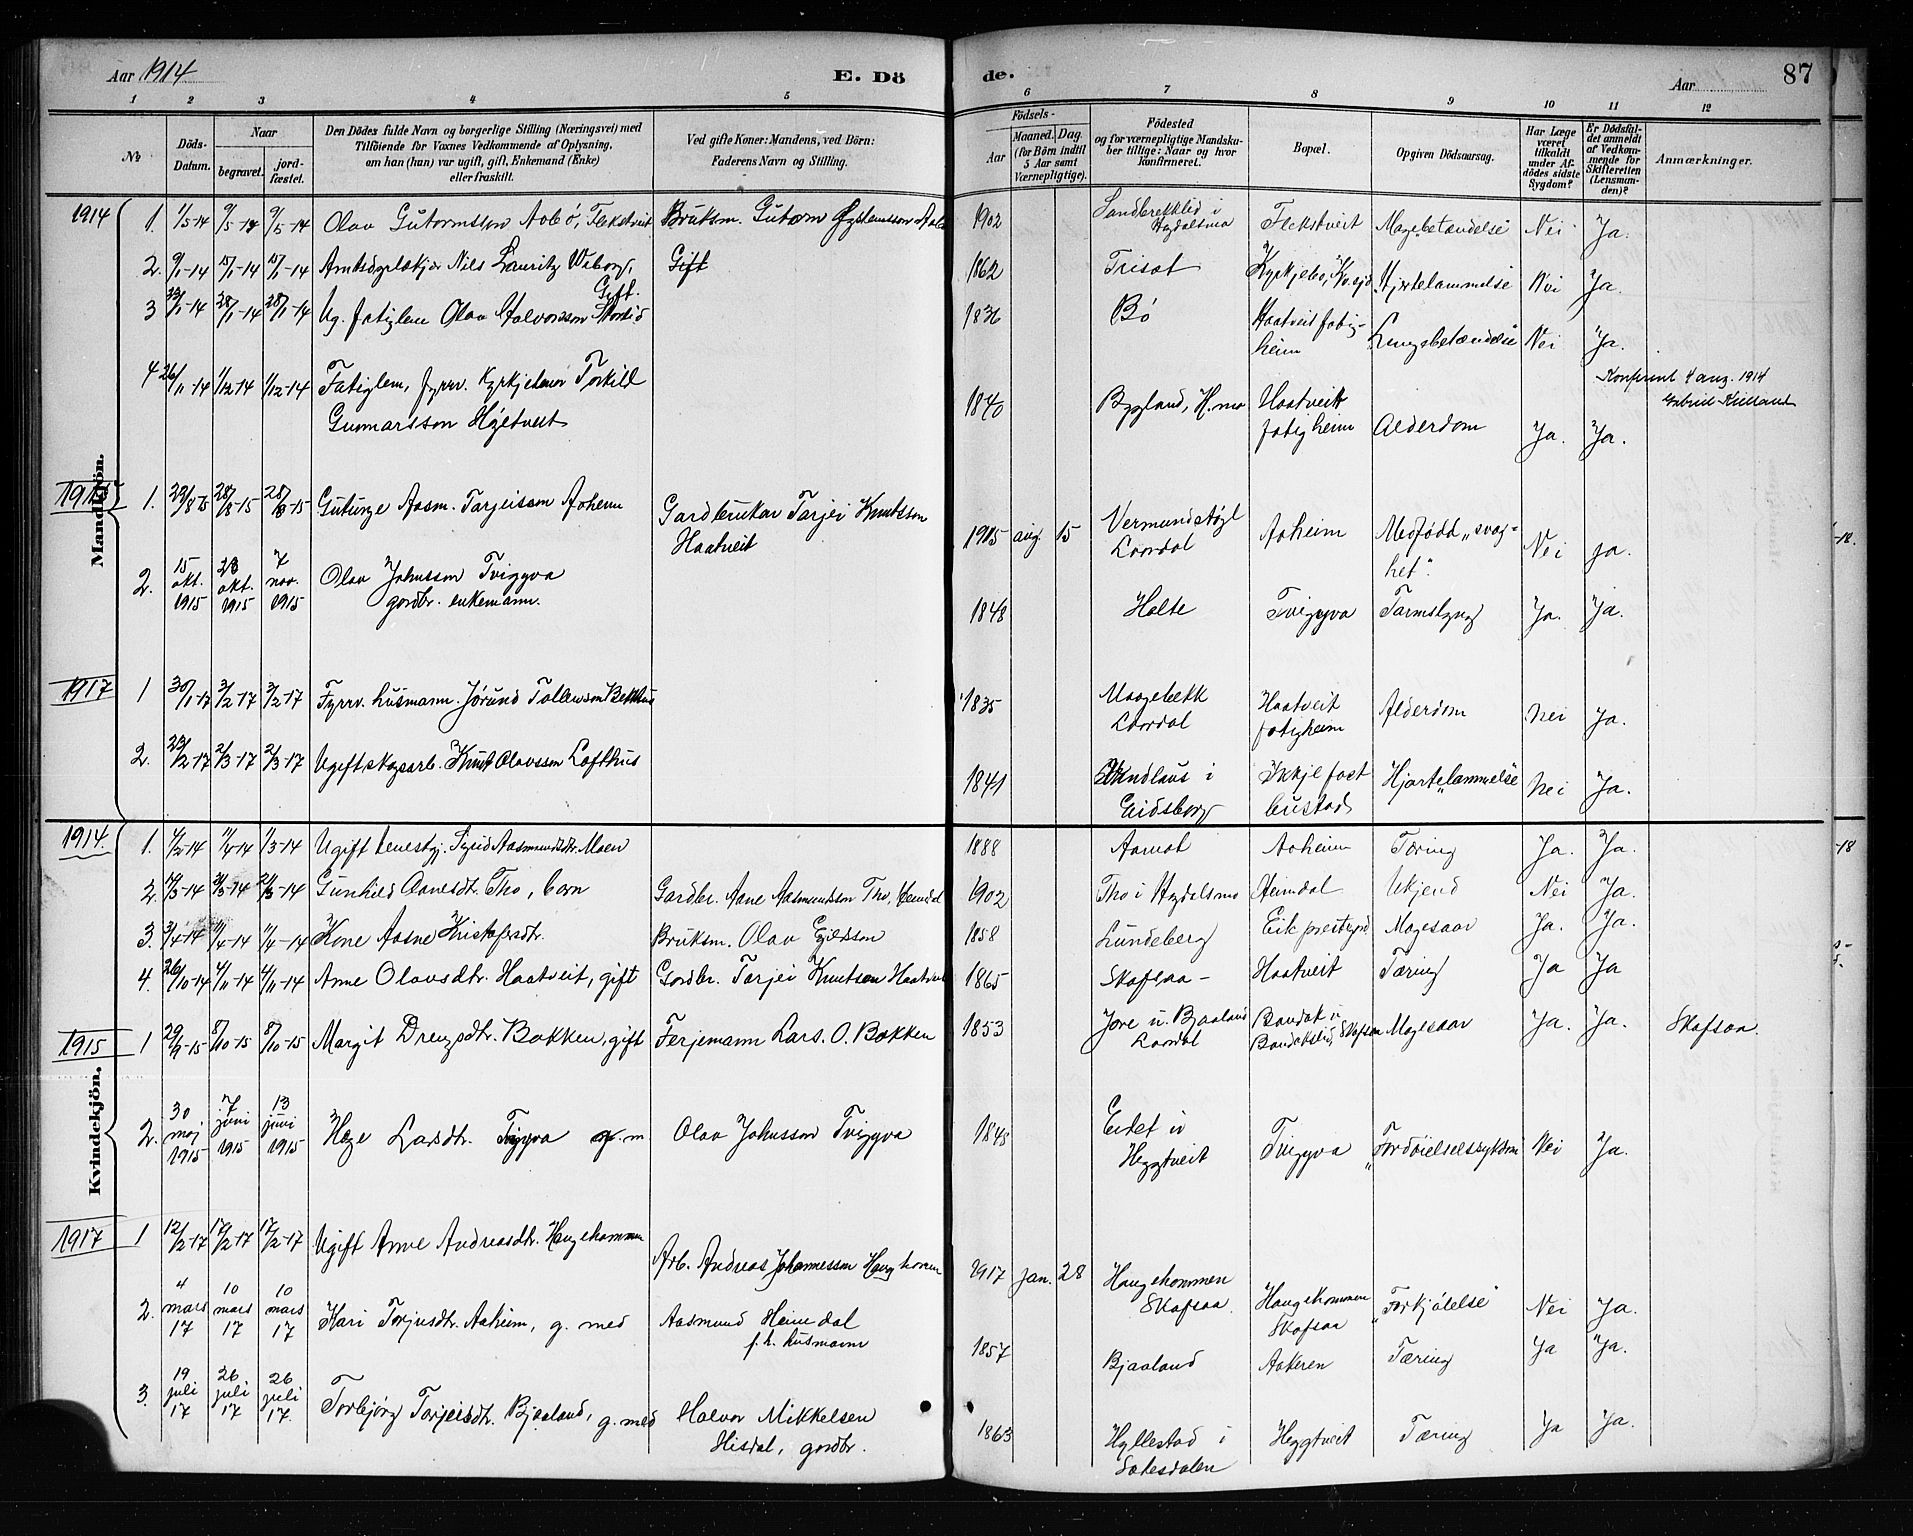 Aar 1914
E. Dö
de.
Aar
87
1 2 3 4 5 6 7 8 9 10 11 12
No
Döds-
Datum.
Naar
begravet.
jord-
fæstet.
Den Dödes fulde Navn og borgerlige Stilling (Næringsvei) med
Tilföiende for Voxnes Vedkommende af Oplysning,
om han (hun) var ugift, gift, Enkemand (Enke)
eller fraskilt.
Ved gifte Koner: Mandens, ved Börn:
Faderens Navn og Stilling.
Födsels-
Aar
Maaned.
Dag.
(for Börn indtil
5 Aar samt
Værnepligtige).
Födested
og for værnepligtige Mandska-
ber tillige: Naar og hvor
konfirmeret.
Bopæl.
Opgiven Dödsaarsag.
Har Læge
været
tilkaldt
under Af-
dödes sidste
Sygdom?
Er Dödsfal-
det anmeldt
af Vedkom-
mende for
Skifteretten
(Lensman-
den)?
Anmærkninger.
Mandkjön.
1914
1. 1/5-14 9/5-14 9/5-14 Olav Gutormsson Aabø, Flekstveit Bruksm. Gutorm 1902 i Høydalsmo Flekstveit Magebetændelse Nei Ja.
2. 9/1-14 15/1-14 15/1-14 Nils Lauritz Wiborg, Gift. Gift 1862 Hjertelammelse Nei Ja.
3 23/1-14 28/1-14 28/1-14 Ug. fatiglem Olav Halvorsson 1836 Bø Haatveit fatig-
heim Lungebetændelse Nei Ja.
4 26/11-14 1/12-14 1/12-14 Fatiglem, fyrrv. Torkild
Gunnarsson Høgetveit 1840 Bygland, H.mo Haatveit
fatigheim Alderdom Ja. Ja.
Konferert 4 aug. 1914
Gabriel Kielland
1915
1. 23/8 15 28/8-15 28/8-15 Gutunge Aasm. Tarjeisson Aaheim Gardbrukar Tarjei Knutsson
Haatveit 1915 aug. 15 Vermundstøyl
Laardal Aaheim Medfødd „svag-
het". Nei ja.
2. 15
okt.
1915 23
okt.
1915 7
nov.
1915 Olav Johnsson Tviggva
gardbr. enkemann. 1848 Holte Tviggva Tarmslyng Ja. Ja.
1917
1 30/1-17 3/2-17 3/2-17 Fyrrv. husmann. Jørund Tallevson Bekkhus 1835 Maagebekk
Laardal Haatveit
fatigheim Alderdom Nei Ja.
2. 23/2-17 2/3-17 2/3-17 Ugift skogsarb. Knut Olavsson Lofthus 1841 i
Eidsborg Ikkje fast
bustad Hjartelammelse Nei Ja.
Kvindekjön.
1914.
1. 1/2-14 1/3-14 Ugift tenestgj. Sigrid Aasmundsdtr. Moen 1888 Aamot Aaheim Tæring Ja. Ja.
2. 14/3-14 21/3-14 21/3-14 Gunhild Aanesdtr. Tho, barn Gardbr. Aane Aasmundsson Tho, Heimdal 1902 Tho i Høydalsmo Heimdal Ukjend Nei Ja.
3. 3/4-14 11/4-14 11/4-14 Kone Aasne Kristofersdtr. Bruksm. Olav 1858 Lundeberg Eik prestegrd Magesaar Ja. Ja.
4. 26/10-14 4/11-14 4/11-14 Anne Olavsdtr. Haatveit, gift Gardbr. Tarjei Knutsson Haatveit 1865 Skafsaa - Haatveit Tæring Ja Ja
1915
1 29/9-15 8/10-15 8/10-15 Margit Drengsdtr. Bakken, gift Ferjemann Lars. O. Bakken 1853 Jore u. Bjaaland
Laardal Bandak u
Bandakslid, Skafsaa Magesaar Ja. Ja. Skafsaa.
2. 30
maj
1915 7
juni
1915 13
juni
1915 Hæge Larsdtr. Tviggva g. m. Olav Johnsson Tviggva 1843 Eidet u
Heggtveit Tviggva „Fordøielsessykdom Nei Ja.
1917
1 12/2-17 17/2-17 17/2-17 Ugift Anne Andreasdtr. Haugekommen Arb. Andreas Johannesson 1917 jan. 28 Haugekommen
Skafsaa. Haugekommen
Skafsaa „Forkjølelse" Nei Ja.
2. 4
mars
17 10
mars
17 10
mars
17 Kari Torjusdtr. Aaheim, g. med Aasmund Heimdal
f. h. husmann 1857 Bjaaland Aakeren Tæring Ja Ja.
3. 19
juli
17 26
juli
17 26
juli
17. Torbjørg Tarjeisdtr. Bjaaland, g. med Halvor Mikkelsen
Hisdal, gardbr. 1863 Hyllestad i
Sætesdalen Heggtveit Tæring Ja Ja.